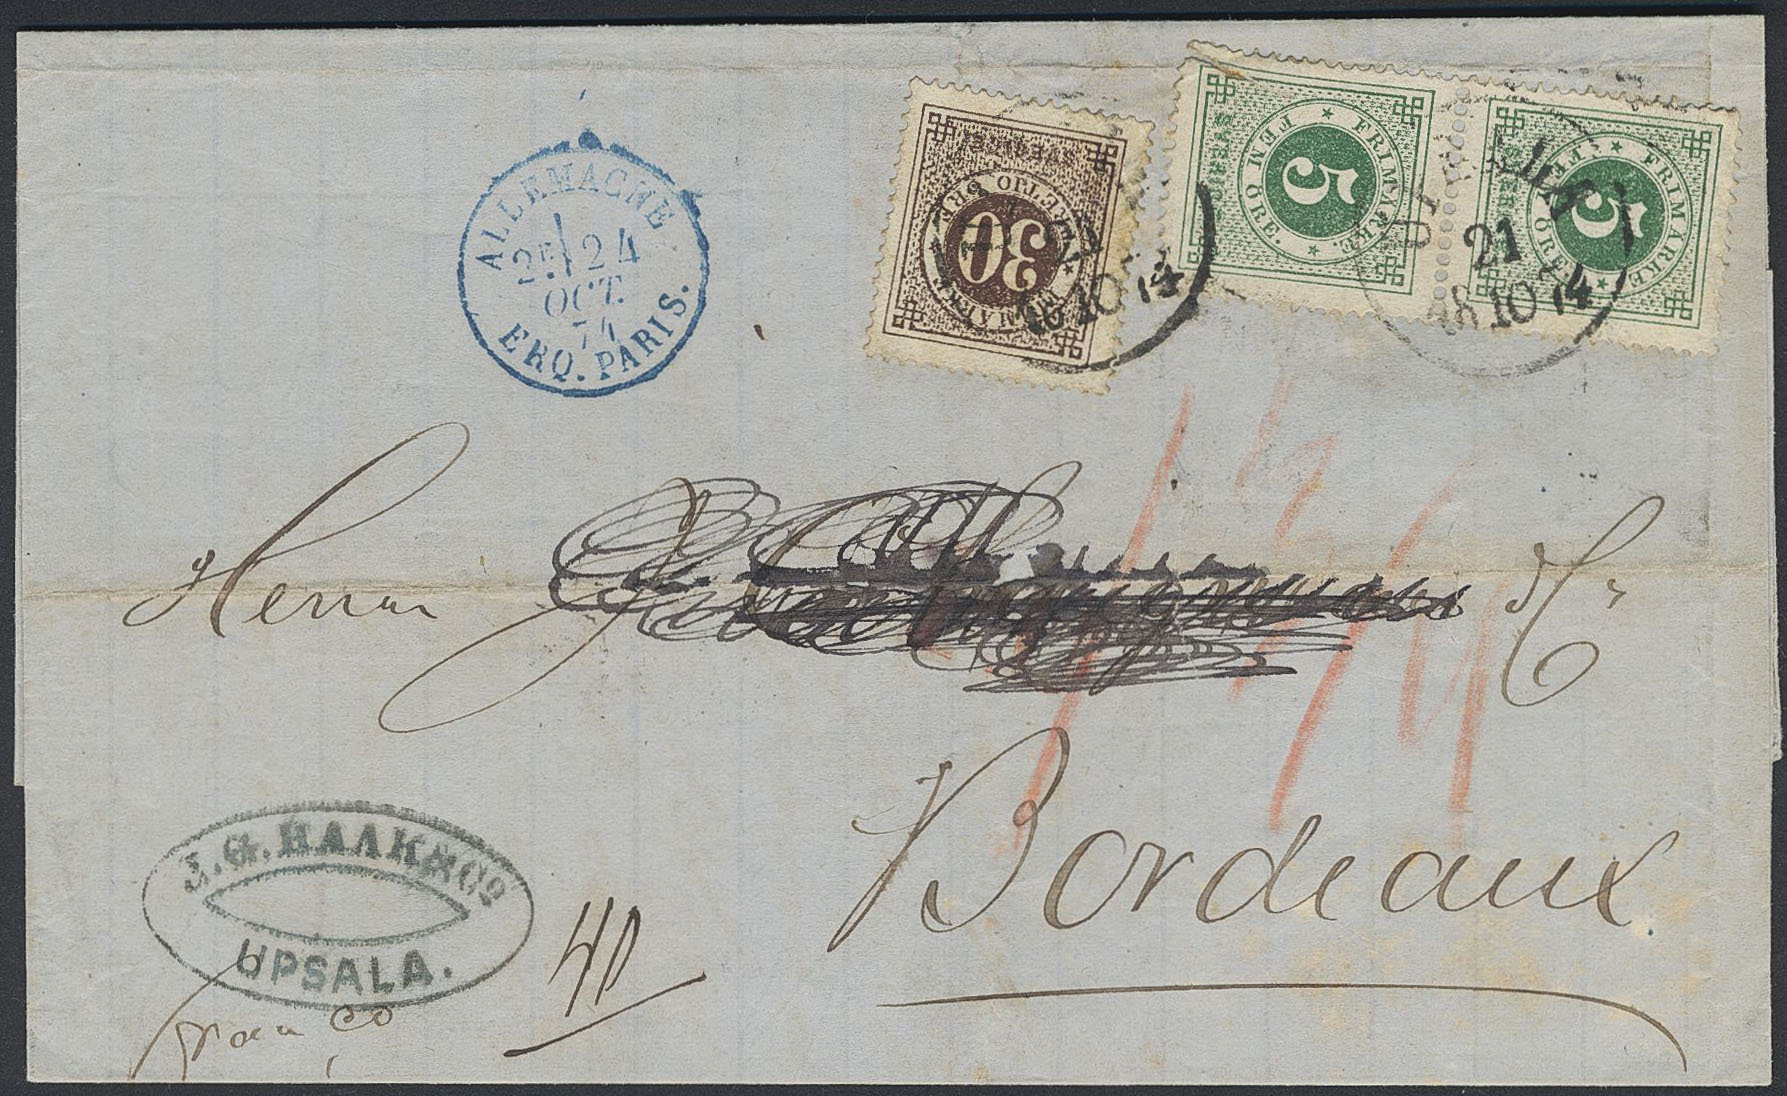 ALLEMAGNE
24
OCT.
74
ERQ. PARIS.
SVERIGE
TRETTIO ÖRE
30
SVERIGE
FRIMÄRKE
FEM ÖRE.
5
FRIMÄRKE
FEM ÖRE.
5
18 10 74
UPSALA
21
18 10 74
Herrn
Bordeaux
J. G. HAAK & Co
UPSALA.
40
Franco